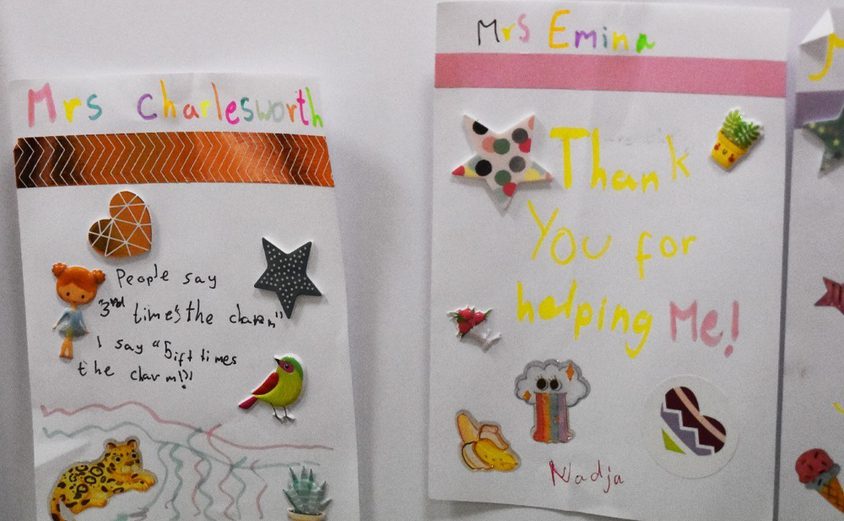 Mrs Charlesworth
People say
"3rd time's the charm"
I say "5ift times
the charm!?"
Mrs Emina
Thank
You for
helping Me!
Nadja